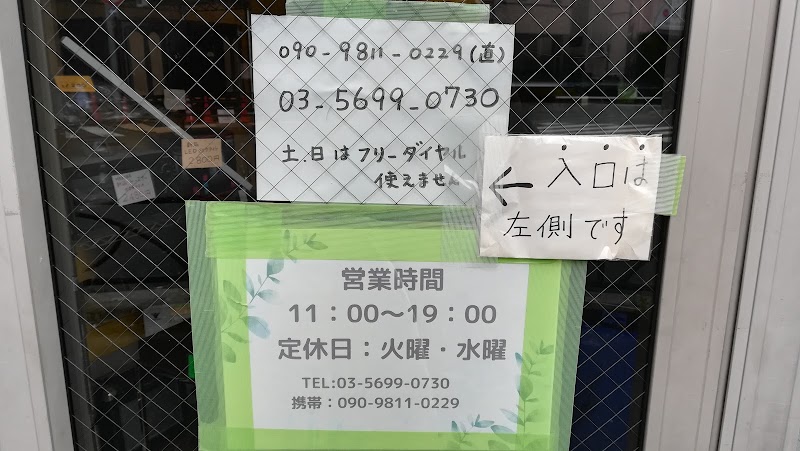 090-9811-0229(直)
03-5699-0730
土.日はフリーダイヤル
使えません
← 入口は
左側です
営業時間
11：00～19：00
定休日：火曜・水曜
TEL:03-5699-0730
携帯：090-9811-0229
2800円